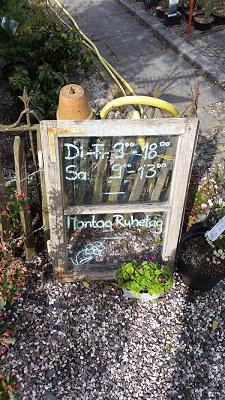 Di.-Fr. 9⁰⁰-18⁰⁰
Sa. 9⁰⁰-13⁰⁰
Montag Ruhetag